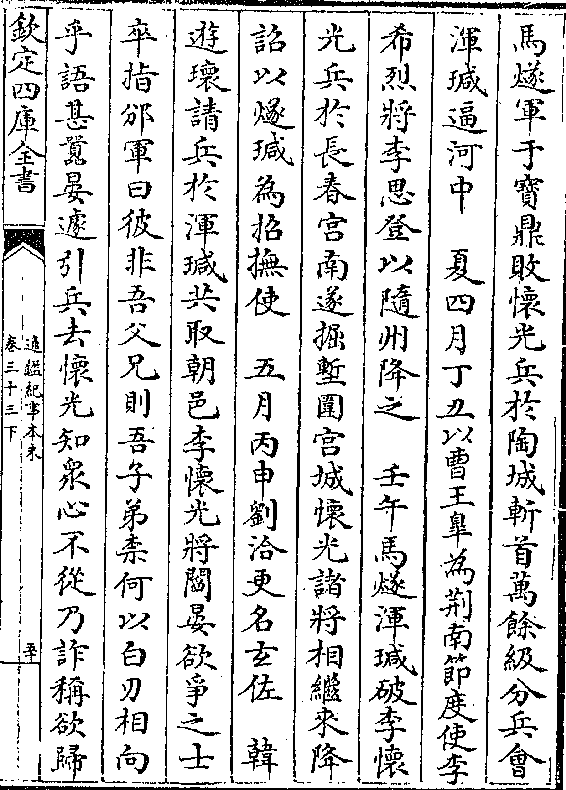 馬燧軍于寶鼎敗懷光兵於陶城斬首萬餘級分兵會
渾瑊逼河中　夏四月丁丑以曹王皐為荆南節度使李
希烈將李思登以隨州降之　壬午馬燧渾瑊破李懷
光兵於長春宮南遂掘塹圍宮城懷光諸將相繼來降
詔以燧瑊為招撫使　五月丙申劉洽更名玄佐　韓
遊瓌請兵於渾瑊共取朝邑李懷光將閻晏欲爭之士
卒指邠軍曰彼非吾父兄則吾子弟柰何以白刃相向
乎語甚囂晏遽引兵去懷光知衆心不從乃詐稱欲歸
欽定四庫全書
通鑑紀事本末
卷三十三下